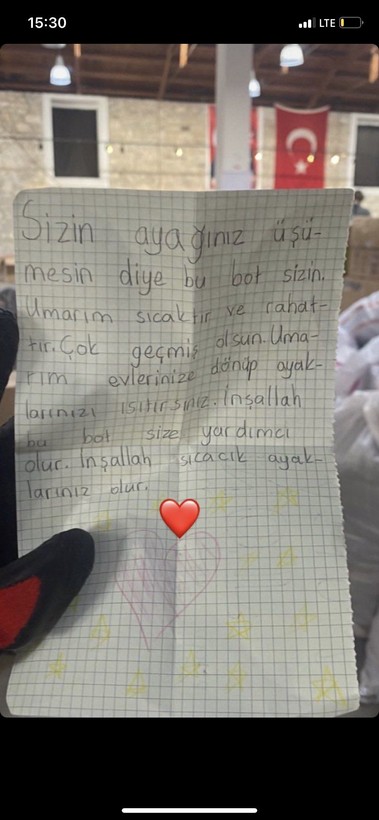 15:30
LTE
Sizin ayağınız üşü-
mesin diye bu bot sizin.
Umarım sıcaktır ve rahat-
tır. Çok geçmiş olsun. Uma-
rım evlerinize dönüp ayak-
larınızı ısıtırsınız. İnşallah
bu bot size yardımcı
olur. İnşallah sıcacık ayak-
larınız olur.